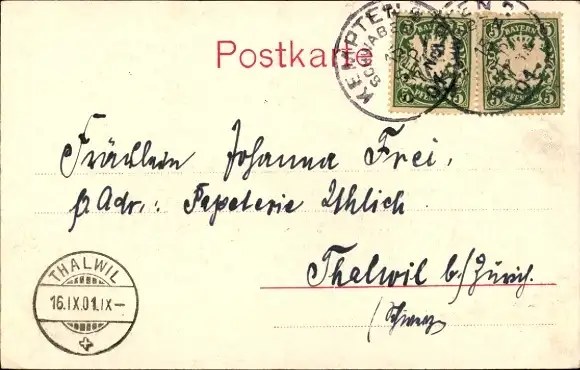 Postkarte
KEMPTEN
SCHWABEN
BAYERN
5 5
PFENNIG
BAYERN
5 5
PFENNIG
Fräulein Johanna Frei,
p. Adr.: Papeterie Uhlich
Thalwil b/ Zürich.
(Schweiz
THALWIL
16.IX.01.IX–